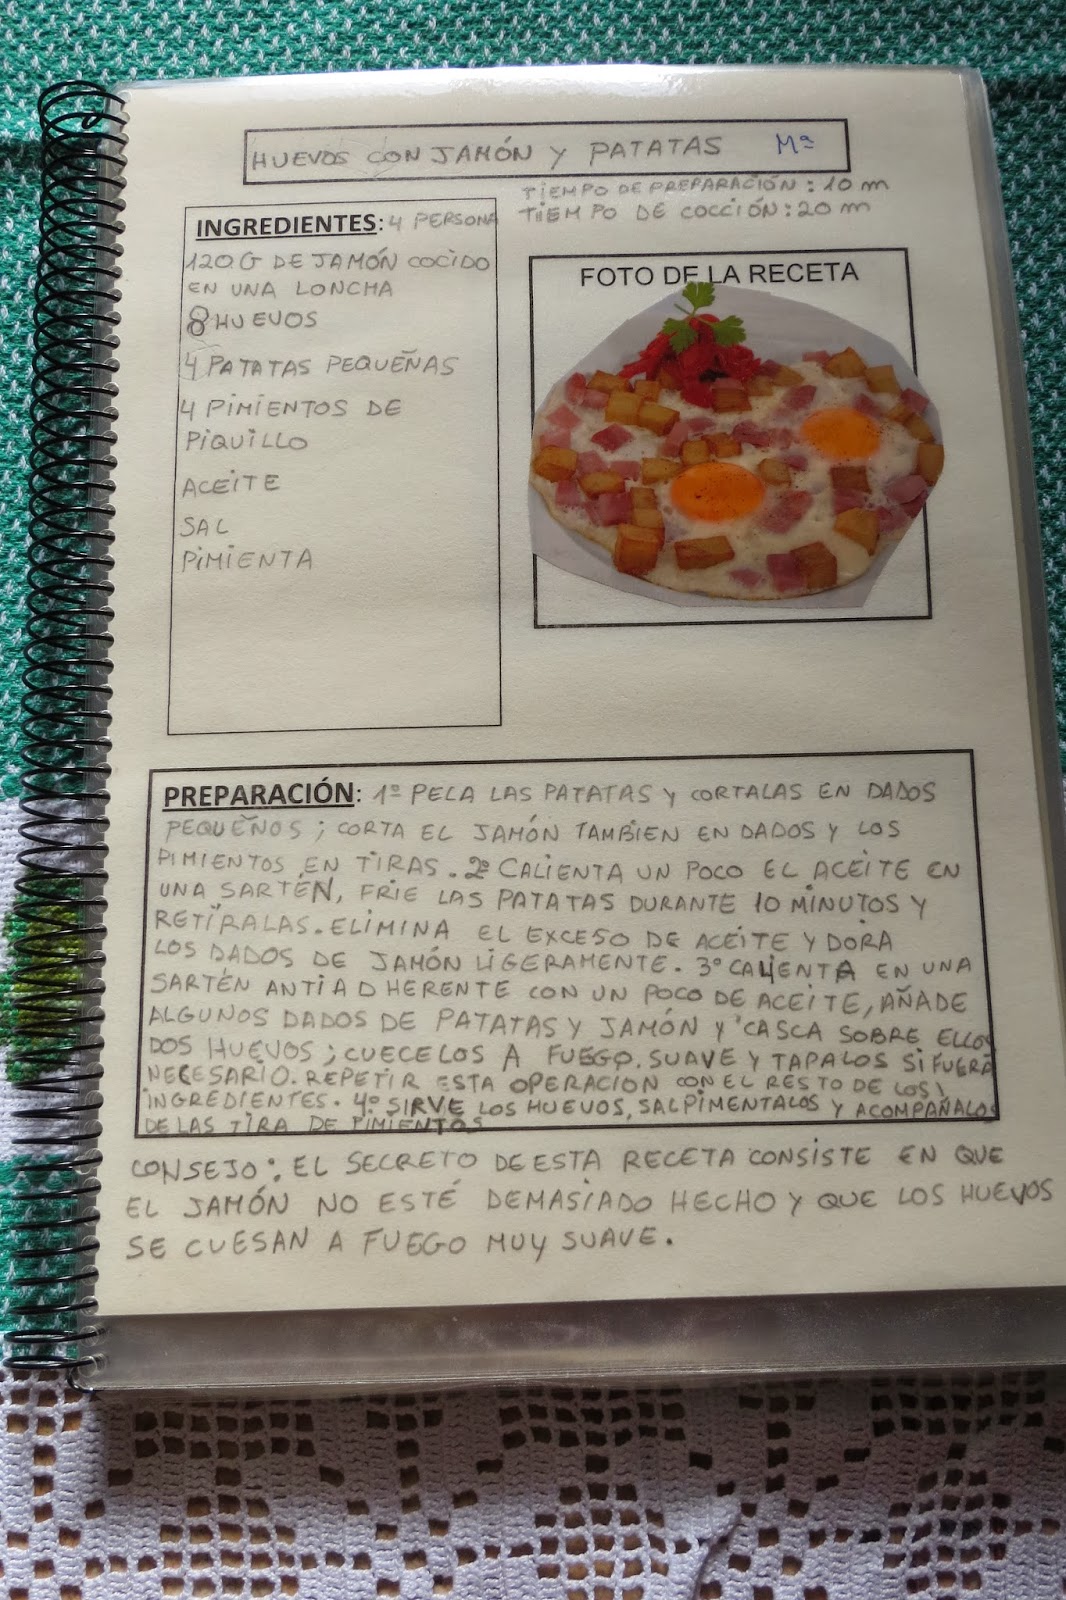 HUEVOS CON JAMÓN Y PATATAS Mª
TIEMPO DE PREPARACIÓN: 10 m
TIEMPO DE COCCIÓN: 20 m
INGREDIENTES: 4 PERSONA
120 G DE JAMÓN COCIDO
EN UNA LONCHA
8 HUEVOS
4 PATATAS PEQUEÑAS
4 PIMIENTOS DE
PIQUILLO
ACEITE
SAL
PIMIENTA
FOTO DE LA RECETA
PREPARACIÓN: 1º PELA LAS PATATAS Y CORTALAS EN DADOS
PEQUEÑOS; CORTA EL JAMÓN TAMBIEN EN DADOS Y LOS
PIMIENTOS EN TIRAS. 2º CALIENTA UN POCO EL ACEITE EN
UNA SARTÉN, FRIE LAS PATATAS DURANTE 10 MINUTOS Y
RETÍRALAS. ELIMINA EL EXCESO DE ACEITE Y DORA
LOS DADOS DE JAMÓN LIGERAMENTE. 3º CALIENTA EN UNA
SARTÉN ANTIADHERENTE CON UN POCO DE ACEITE, AÑADE
ALGUNOS DADOS DE PATATAS Y JAMÓN Y CASCA SOBRE ELLOS
DOS HUEVOS; CUECELOS A FUEGO SUAVE Y TAPALOS SI FUERA
NECESARIO. REPETIR ESTA OPERACION CON EL RESTO DE LOS
INGREDIENTES. 4º SIRVE LOS HUEVOS, SALPIMENTALOS Y ACOMPAÑALOS
DE LAS TIRA DE PIMIENTOS
CONSEJO: EL SECRETO DE ESTA RECETA CONSISTE EN QUE
EL JAMÓN NO ESTÉ DEMASIADO HECHO Y QUE LOS HUEVOS
SE CUESAN A FUEGO MUY SUAVE.